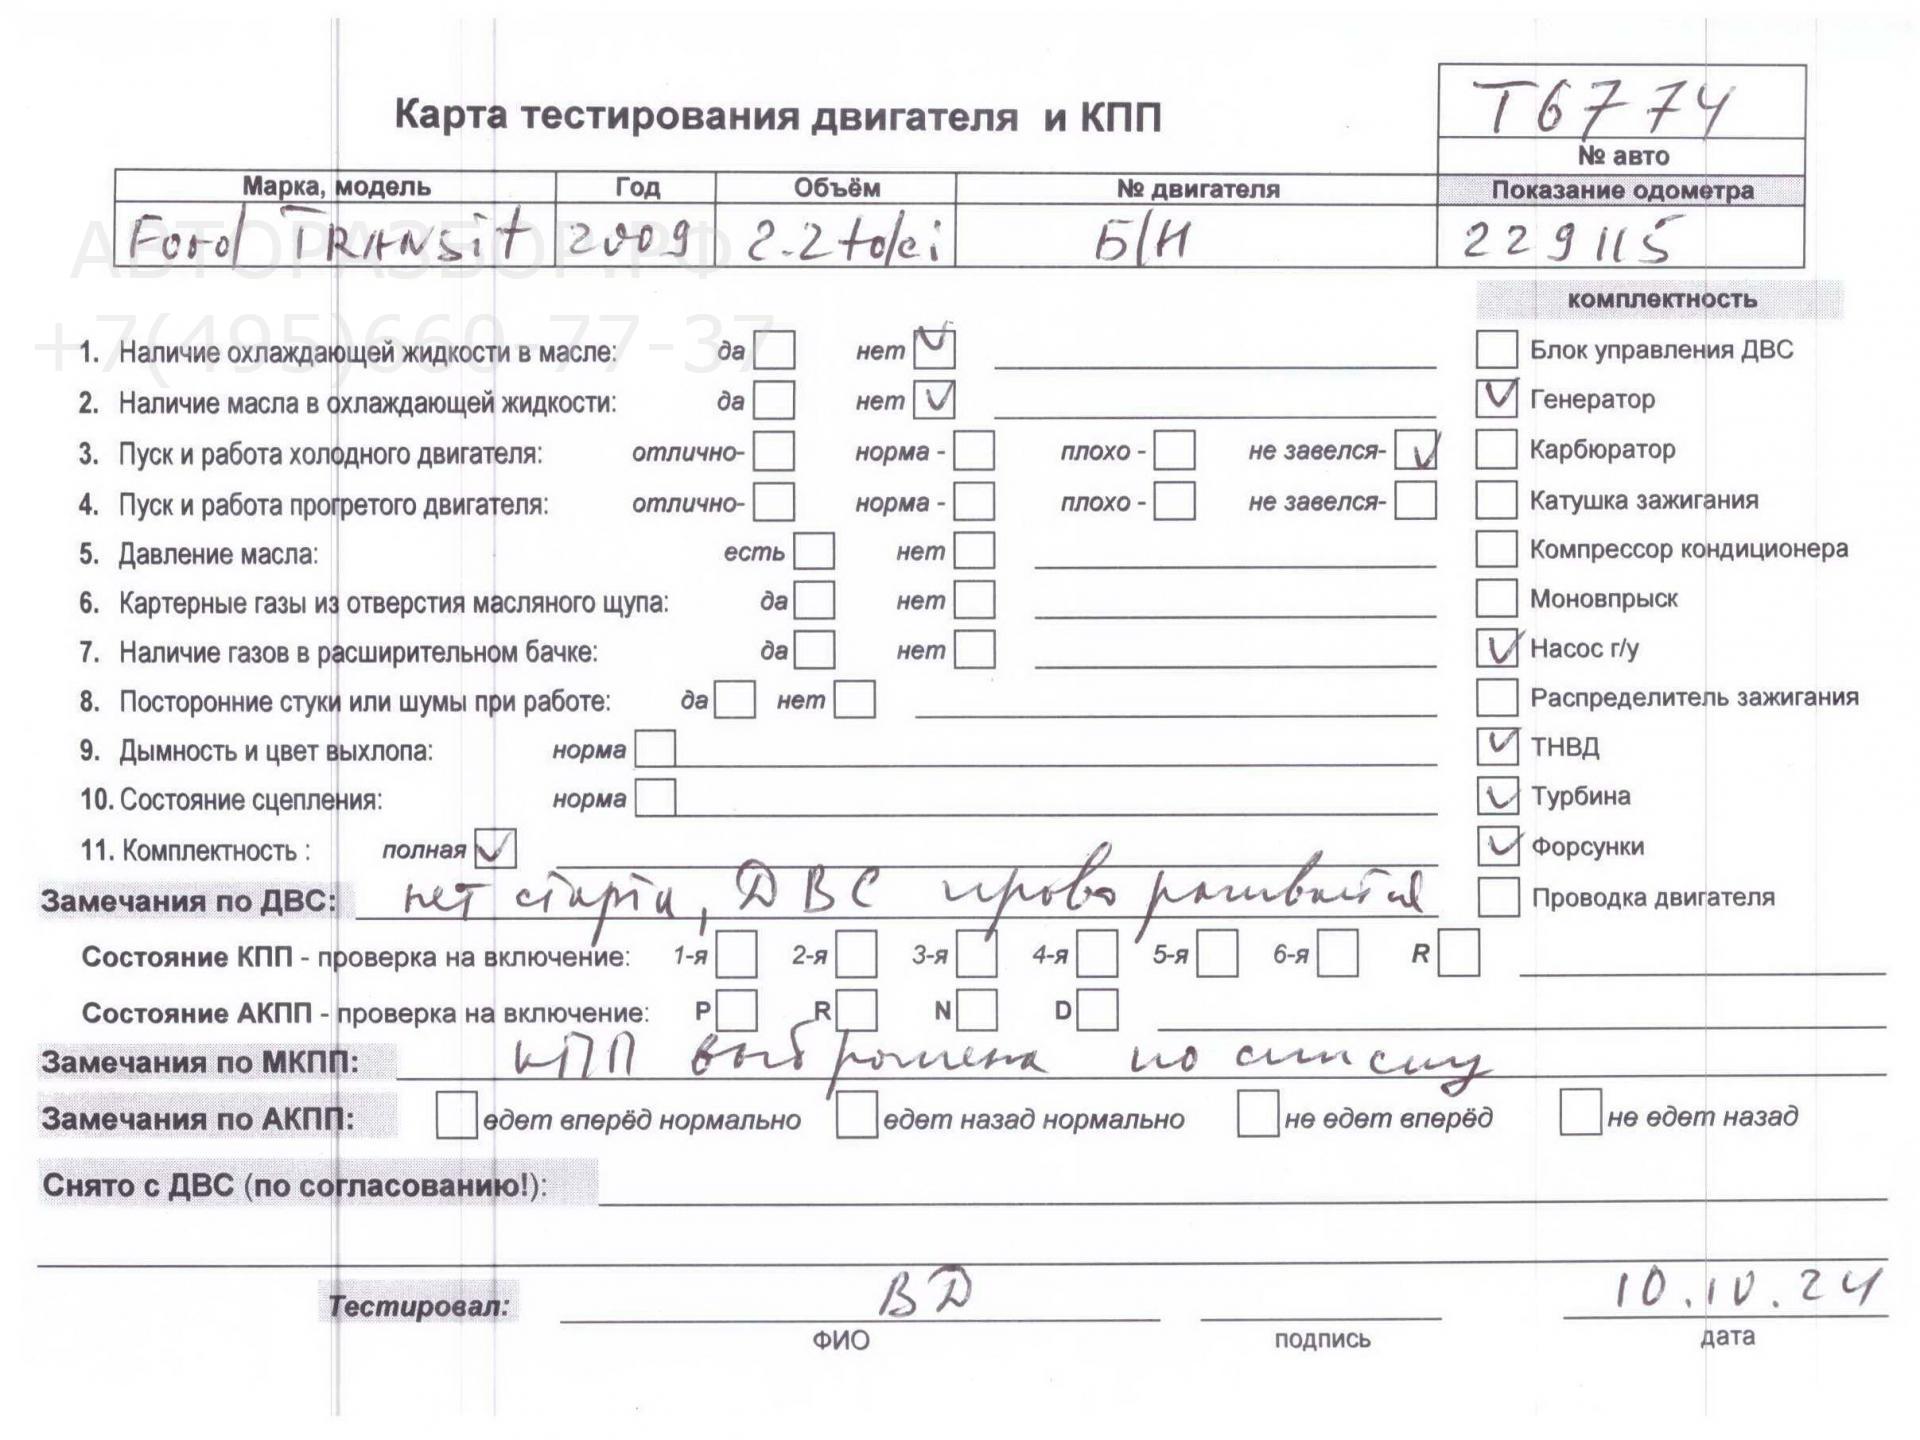 Т6774
Карта тестирования двигателя и КПП
№ авто
Марка, модель Год Объём № двигателя Показание одометра
Ford TRANSit 2009 2.2 tdci Б/Н 229115
АВТОРАЗБОР.РФ
+7(495)660-77-37
комплектность
1. Наличие охлаждающей жидкости в масле: да нет Блок управления ДВС
2. Наличие масла в охлаждающей жидкости: да нет Генератор
3. Пуск и работа холодного двигателя: отлично- норма - плохо - не завелся- Карбюратор
4. Пуск и работа прогретого двигателя: отлично- норма - плохо - не завелся- Катушка зажигания
5. Давление масла: есть нет Компрессор кондиционера
6. Картерные газы из отверстия масляного щупа: да нет Моновпрыск
7. Наличие газов в расширительном бачке: да нет Насос г/у
8. Посторонние стуки или шумы при работе: да нет Распределитель зажигания
9. Дымность и цвет выхлопа: норма ТНВД
10. Состояние сцепления: норма Турбина
11. Комплектность : полная Форсунки
Замечания по ДВС: нет старта, ДВС проворачивается Проводка двигателя
Состояние КПП - проверка на включение: 1-я 2-я 3-я 4-я 5-я 6-я R
Состояние АКПП - проверка на включение: P R N D
Замечания по МКПП: КПП выброшена по списку
Замечания по АКПП: едет вперёд нормально едет назад нормально не едет вперёд не едет назад
Снято с ДВС (по согласованию!):
Тестировал: ВД 10.10.24
ФИО подпись дата